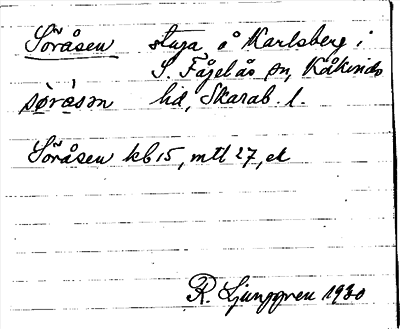 Söråsen stuga å Karlsberg i
S. Fågelås sn, Kåkinds
sö̀ràsən hd, Skarab. l.
Söråsen kb 15, mtl 27, ek
R. Ljunggren 1930